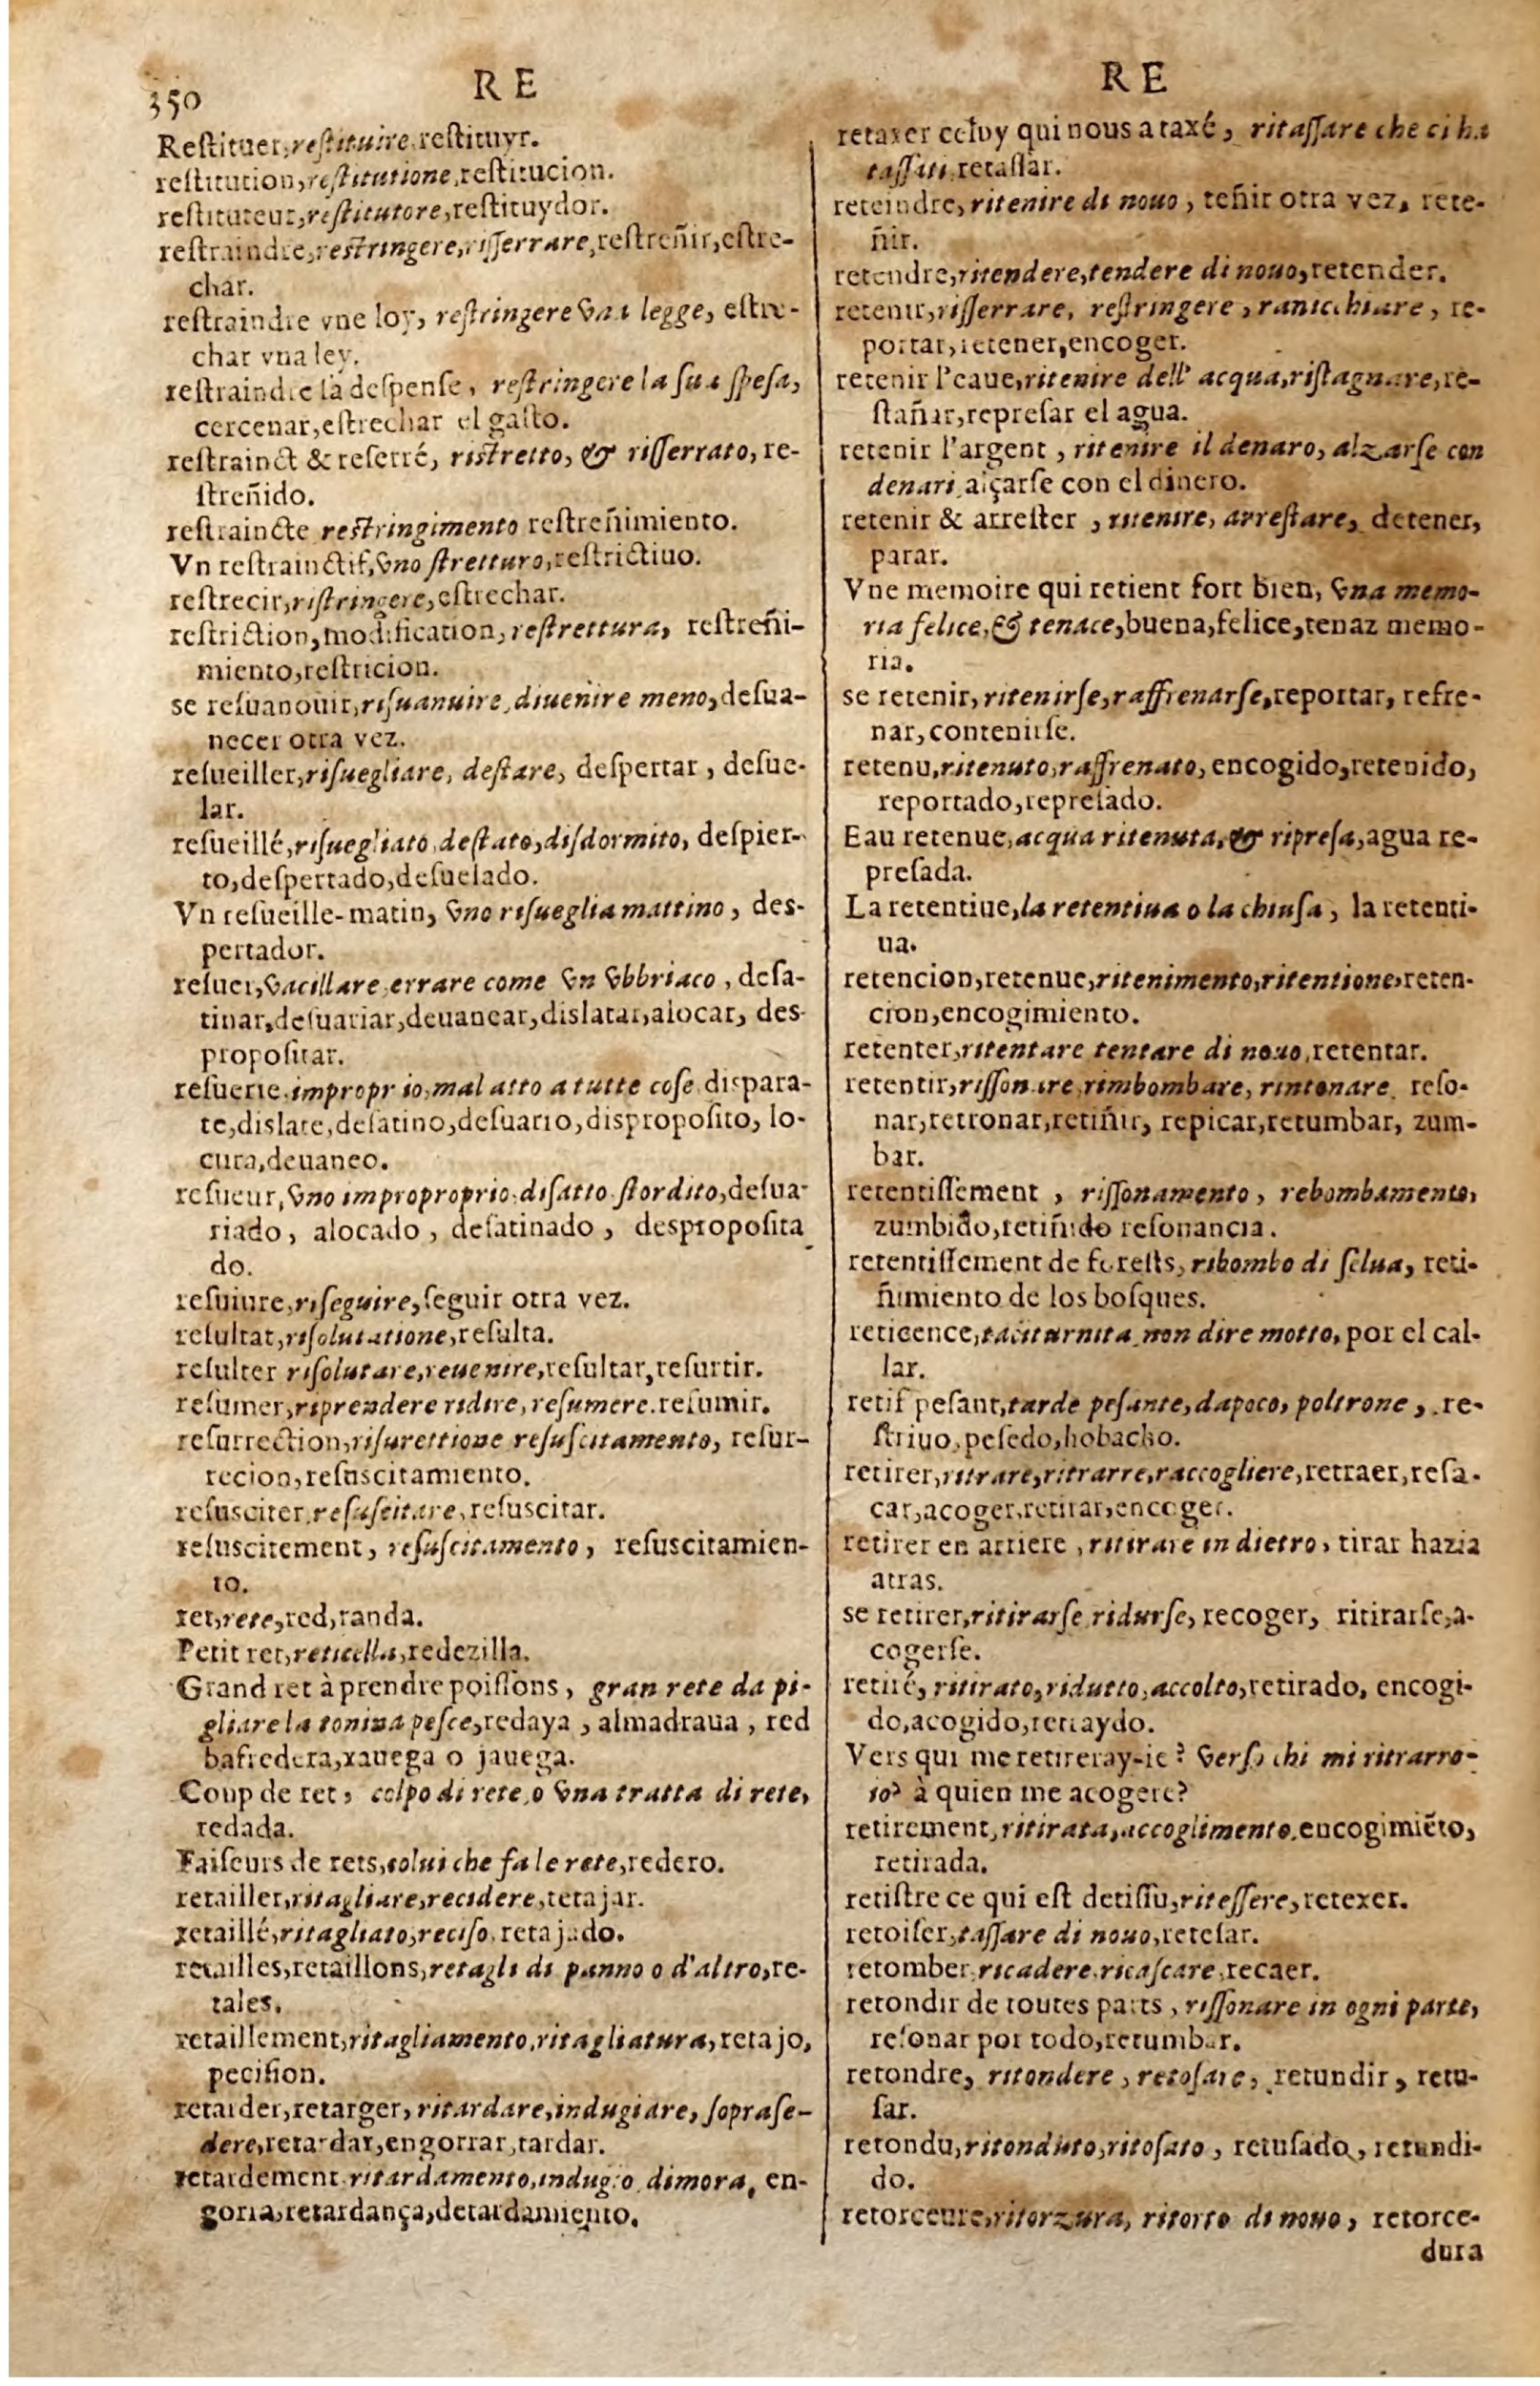 350
RE
Restituer, reſtituire, reſtituyr.
reſtitution, reſtitutione, reſtitucion.
reſtituteur, reſtitutore, reſtituydor.
reſtraindre, reſtringere, riſſerrare, reſtreñir, eſtre-
char.
reſtraindre vne loy, reſtringere vna legge, eſtre-
char vna ley.
reſtraindre la deſpenſe, reſtringere la ſua ſpeſa,
cercenar, eſtrechar el gaſto.
reſtrainct & reſerré, riſtretto, & riſſerrato, re-
ſtreñido.
reſtraincte reſtringimento reſtreñimiento.
Vn reſtrainctif, vno ſtretturo, reſtrictiuo.
reſtrecir, riſtringere, eſtrechar.
reſtriction, modification, reſtrettura, reſtreñi-
miento, reſtricion.
se reſuanouir, riſuanuire, diuenire meno, deſua-
necer otra vez.
reſueiller, riſuegliare, deſtare, deſpertar, deſue-
lar.
reſueillé, riſuegliato, deſtato, diſdormito, deſpier-
to, deſpertado, deſuelado.
Vn reſueille-matin, vno riſueglia mattino, des-
pertador.
reſuer, vacillare, errare come vn vbbriaco, deſa-
tinar, deſuariar, deuanear, dislatar, alocar, des-
propoſitar.
reſuerie, improprio, mal atto a tutte coſe, dispara-
te, dislate, deſatino, deſuario, dispropoſito, lo-
cura, deuaneo.
reſueur, vno improproprio, diſatto ſtordito, deſua-
riado, alocado, deſatinado, despropoſita
do.
reſuiure, riſeguire, ſeguir otra vez.
reſultat, riſolutatione, reſulta.
reſulter riſolutare, reuenire, reſultar, reſurtir.
reſumer, riprendere ridire, reſumere. reſumir.
reſurrection, riſurettione reſuſcitamento, reſur-
recion, reſuscitamiento.
reſusciter, reſuſcitare, reſuscitar.
reſuscitement, reſuſcitamento, reſuscitamien-
to.
ret, rete, red, randa.
Petit ret, reticella, redezilla.
Grand ret à prendre poiſſons, gran rete da pi-
gliare la tonina peſce, redaya, almadraua, red
bafredera, xauega o jauega.
Coup de ret, colpo di rete, o vna tratta di rete,
redada.
Faiſeurs de rets, colui che fa le rete, redero.
retailler, ritagliare, recidere, retajar.
retaillé, ritagliato, reciſo, retajado.
retailles, retaillons, retagli di panno o d'altro, re-
tales.
retaillement, ritagliamento, ritagliatura, retajo,
peciſion.
retarder, retarger, ritardare, indugiare, ſopraſe-
dere, retardar, engorrar, tardar.
retardement, ritardamento, indugio, dimora, en-
gorra, retardança, detardamiento.
RE
retaxer celuy qui nous a taxé, ritaſſare che ci ha
taſſati, retaſſar.
reteindre, ritenire di nouo, teñir otra vez, rete-
ñir.
retendre, ritendere, tendere di nouo, retender.
retenir, riſſerrare, reſtringere, ranicchiare, re-
portar, retener, encoger.
retenir l'eaue, ritenire dell' acqua, riſtagnare, re-
ſtañar, repreſar el agua.
retenir l'argent, ritenire il denaro, alzarſe con
denari, alçarſe con el dinero.
retenir & arreſter, ritenire, arreſtare, detener,
parar.
Vne memoire qui retient fort bien, vna memo-
ria felice, & tenace, buena, felice, tenaz memo-
ria.
se retenir, ritenirſe, raffrenarſe, reportar, refre-
nar, contenirſe.
retenu, ritenuto, raffrenato, encogido, retenido,
reportado, repreſado.
Eau retenue, acqua ritenuta, & ripreſa, agua re-
preſada.
La retentiue, la retentiua o la chiuſa, la retenti-
ua.
retencion, retenue, ritenimento, ritentione, reten-
cion, encogimiento.
retenter, ritentare tentare di nouo, retentar.
retentir, riſſonare, rimbombare, rintonare, reſo-
nar, retronar, retiñir, repicar, retumbar, zum-
bar.
retentiſſement, riſſonamento, rebombamento,
zumbido, retiñido reſonancia.
retentiſſement de foreſts, ribombo di ſelua, reti-
ñimiento de los boſques.
reticence, taciturnita, non dire motto, por el cal-
lar.
retif peſant, tarde peſante, dapoco, poltrone, re-
ſtriuo, peſedo, hobacho.
retirer, ritrare, ritrarre, raccogliere, retraer, reſa-
car, acoger, retirar, encoger.
retirer en arriere, ritirare in dietro, tirar hazia
atras.
se retirer, ritirarſe, ridurſe, recoger, ritirarſe, a-
cogerſe.
retiré, ritirato, ridutto, accolto, retirado, encogi-
do, acogido, retraydo.
Vers qui me retireray-ie? verſo chi mi ritrarro-
io? à quien me acogere?
retirement, ritirata, accoglimento, encogimiẽto,
retirada.
retiſtre ce qui eſt detiſſu, riteſſere, retexer.
retoiſer, taſſare di nouo, reteſar.
retomber, ricadere, ricaſcare, recaer.
retondir de toutes parts, riſſonare in ogni parte,
reſonar por todo, retumbar.
retondre, ritondere, retoſare, retundir, retu-
ſar.
retondu, ritonduto, ritoſato, retuſado, retundi-
do.
retorceure, ritorzura, ritorto di nouo, retorce-
dura